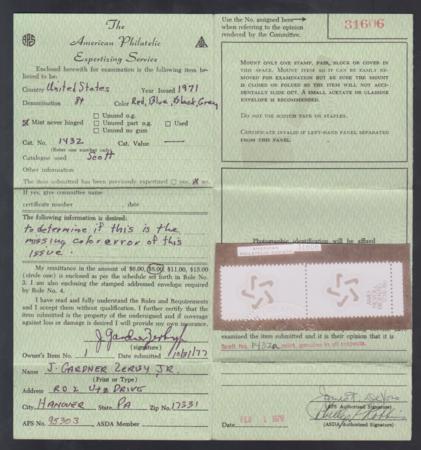 The
American Philatelic
Expertizing Service
Enclosed herewith for examination is the following item believed to be:
Country United States Year Issued 1971
Denomination 8¢ Color Red, Blue, Black, Gray
Mint never hinged
Unused o.g.
Unused part o.g.
Used
Unused no gum
Cat. No. 1432 Cat. Value —
(Enter one number only)
Catalogue used Scott
Other information
The item submitted has been previously expertized yes, no.
If yes, give committee name
certificate number date
The following information is desired:
to determine if this is the
missing color error of this
issue.
My remittance in the amount of $6.00, $8.00, $11.00, $15.00
(circle one) is enclosed as per the schedule set forth in Rule No.
3. I am also enclosing the stamped addressed envelope required
by Rule No. 4.
I have read and fully understand the Rules and Requirements
and I accept them without qualification. I further certify that the
item submitted is the property of the undersigned and if coverage
against loss or damage is desired I will provide my own insurance.
(signature)
Owner's Item No. Date submitted 10/31/77
Name J. GARDNER ZERBY, JR.
(Print or Type)
Address RD 2 DRIVE
City HANOVER State PA Zip No. 17331
APS No. 95303 ASDA Member
Use the No. assigned here
when referring to the opinion
rendered by the Committee.
31606
MOUNT ONLY ONE STAMP, PAIR, BLOCK OR COVER IN
THIS SPACE. MOUNT ITEM SO IT CAN BE EASILY RE-
MOVED FOR EXAMINATION BUT BE SURE THE MOUNT
IS CLOSED OR FOLDED SO THE ITEM WILL NOT ACCI-
DENTALLY SLIDE OUT. A SMALL ACETATE OR GLASSINE
ENVELOPE IS RECOMMENDED.
DO NOT USE SCOTCH TAPE OR STAPLES.
CERTIFICATE INVALID IF LEFT-HAND PANEL SEPARATED
FROM THIS PANEL.
Photographic identification will be affixed
examined the item submitted and it is their opinion that it is
Scott No. 1432a, mint, genuine in all respects.
(APS Authorized Signature)
Date FEB 1 1978
(ASDA Authorized Signature)